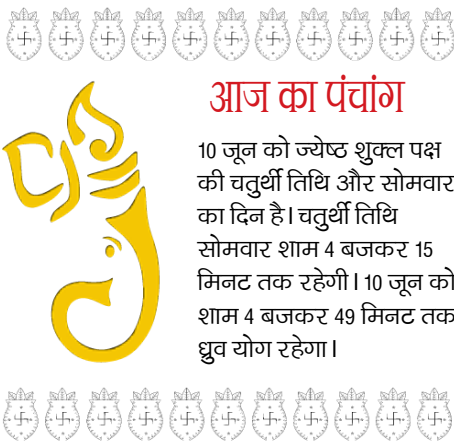 आज का पंचांग
10 जून को ज्येष्ठ शुक्ल पक्ष
की चतुर्थी तिथि और सोमवार
का दिन है। चतुर्थी तिथि
सोमवार शाम 4 बजकर 15
मिनट तक रहेगी। 10 जून को
शाम 4 बजकर 49 मिनट तक
ध्रुव योग रहेगा।